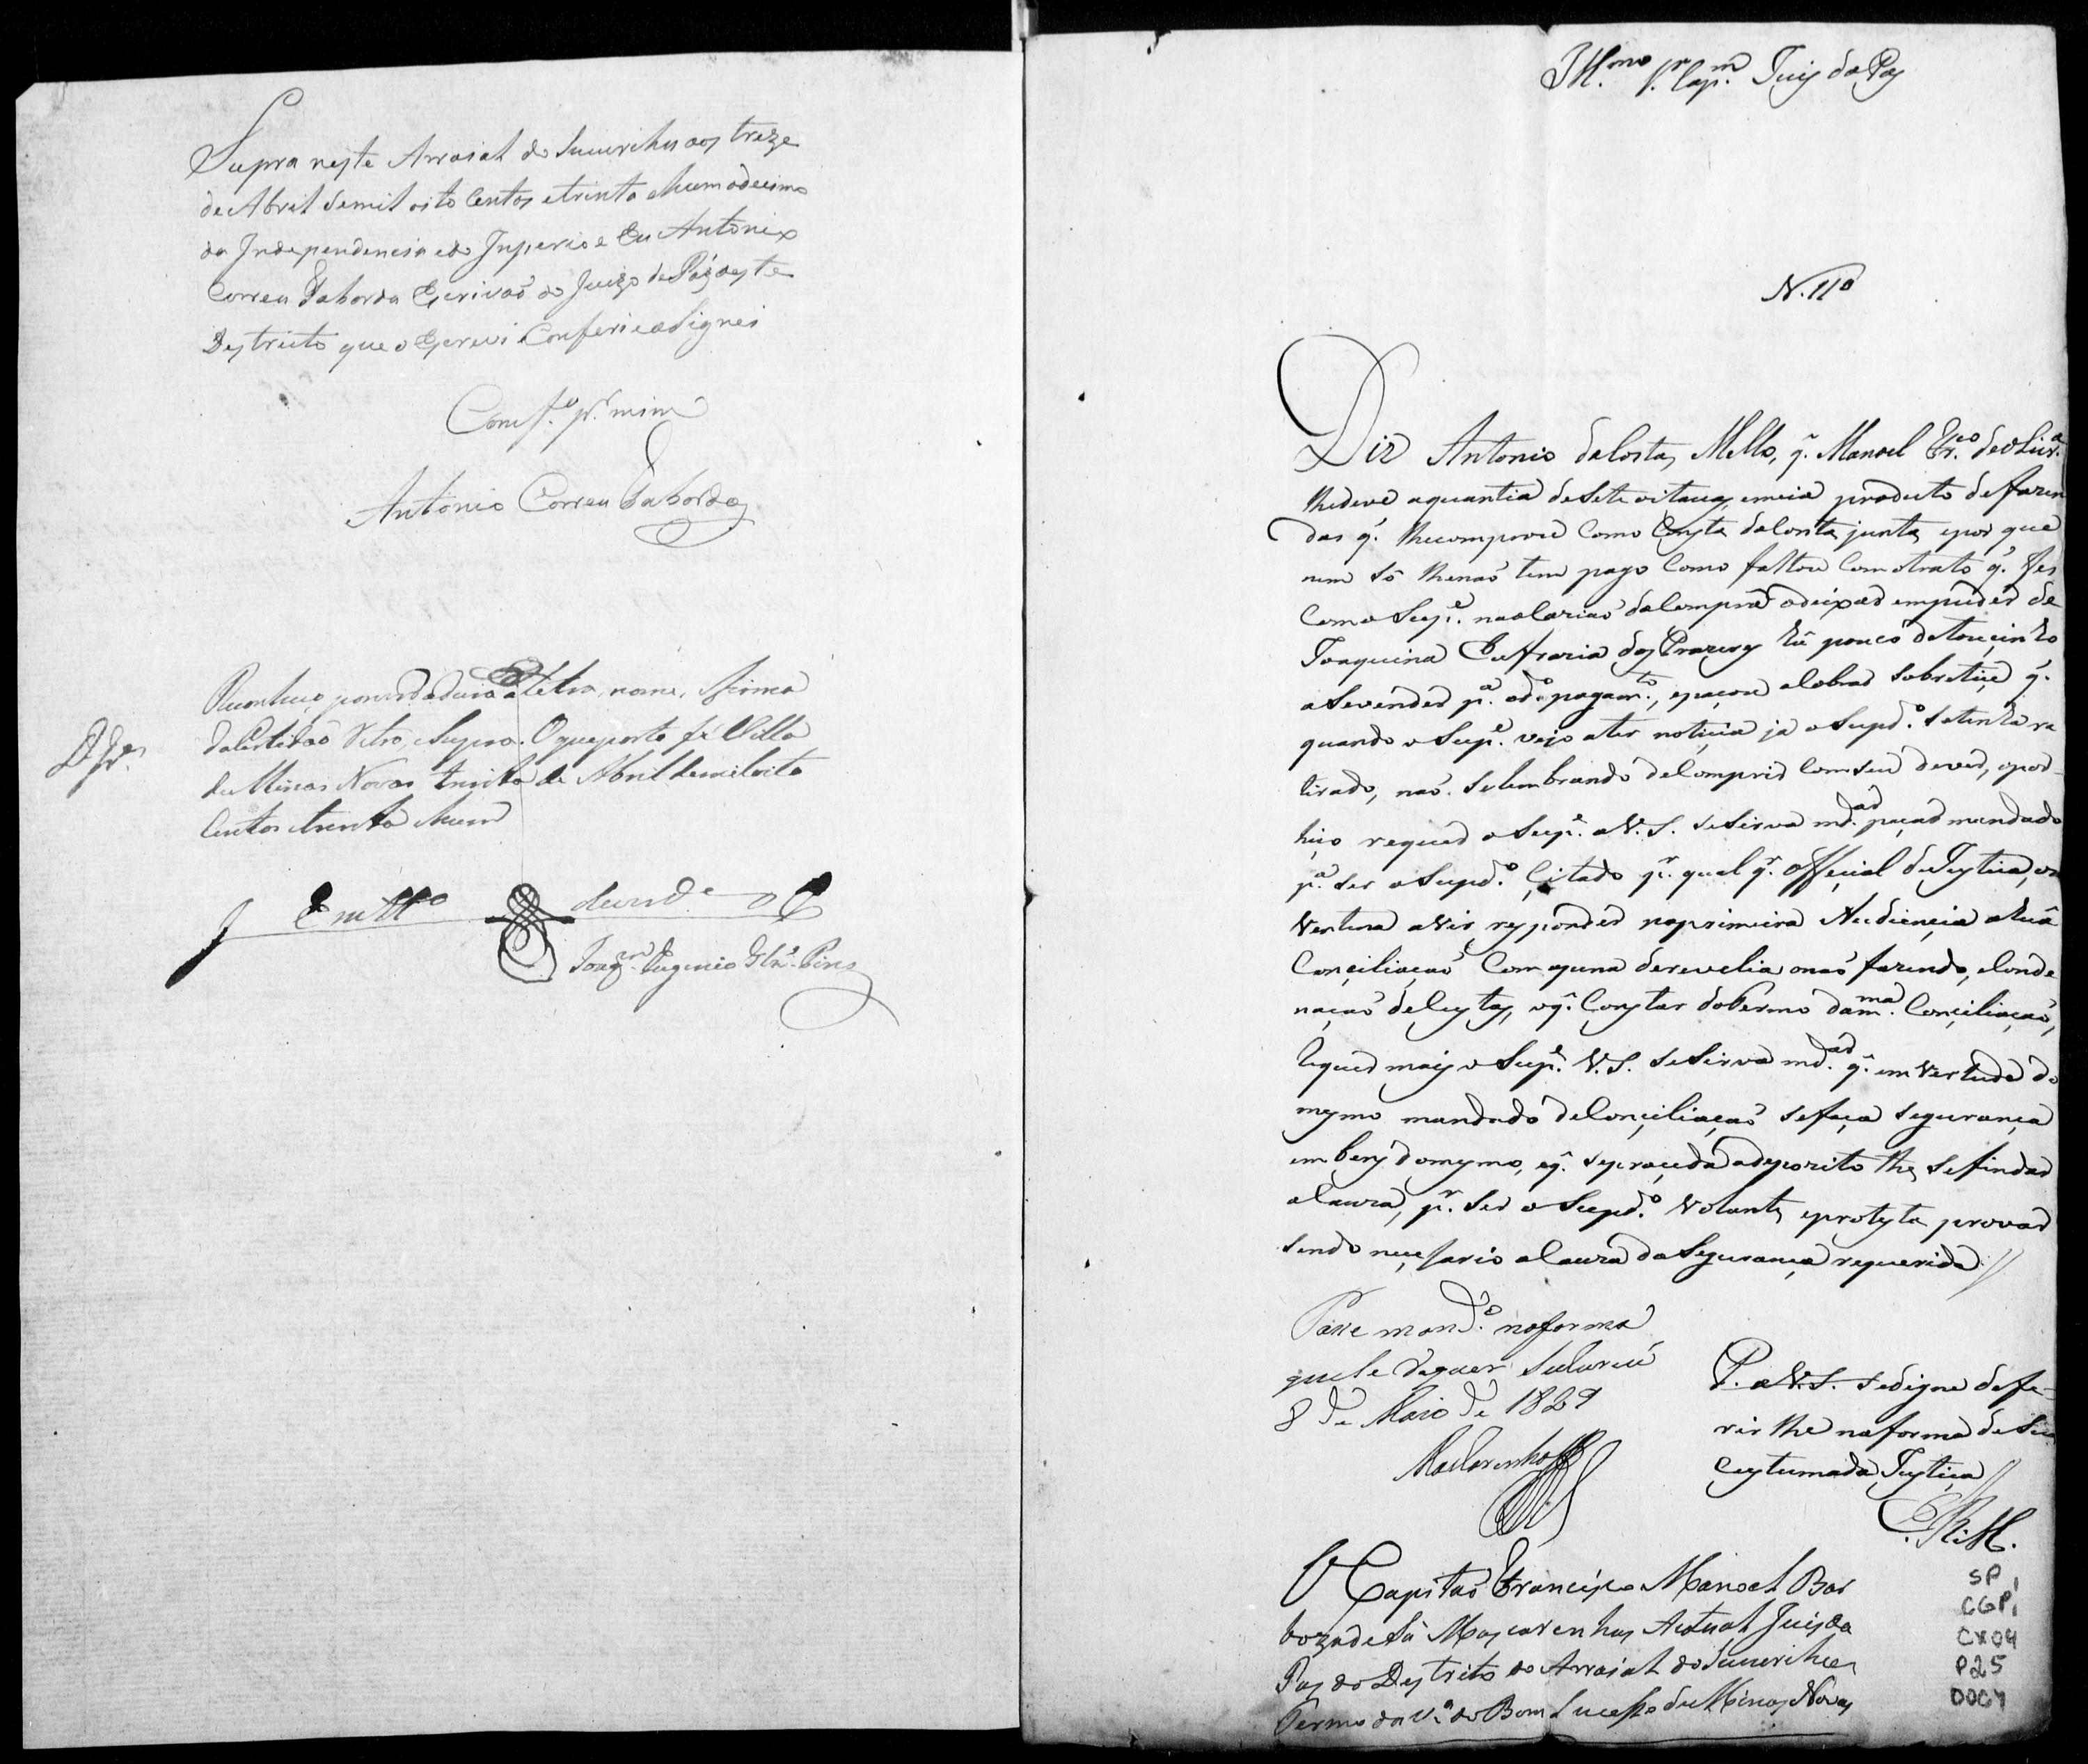 Supra neste Arraial do Sucurihu aos treze
de Abril de mil oito Centos e trinta e hum decimo
da Independencia e do Imperio e Eu Antonio
Correa Taborda Escrivaõ do Juizo de Paz deste
Destricto que o Escrevi Conferi e aSignei
Conf.º p.r mim
Antonio Correa Taborda
Reconheço por verdadeira a letra, nome, e firma
da Certidaõ retro, e Supra. O que porto fé Villa
de Minas Novas trinta de Abril de mil oito
Centos e trinta e hum
Em tt.º de verd.e
Joaq.m Eugenio Pires
Ill.mo S.r Cap.m Juiz da Paz
N. 110
Diz Antonio da Costa Mello, q. Manoel Fr.co de oLivr.a
lhe deve a quantia de Sete oitavas, e meia producto de fazen
das q. lhe comprou Como Consta da Conta junta, e por que
nem Só lhe naõ tem pago Como faltou Com o trato q. fes
Com o Sup.e na ocaziaõ da Compra a deixar em puder de
Joaquina Eufrazia dos Prazeres hũ pouco de touçinho
a Se vender p.a o d.o pagam.to, e paçou a Cobrar Sobretiçe q.
quando o Sup.e veio a ter notiçia ja o Supd.o Se tinha re
tirado, naõ Se lembrando de Comprir Com Seu dever, e por
hiço requer o Sup.e a V. S. Se Sirva md.ar paçar mandado
p.a Ser o Supd.o Çitado p.r qual q.r offiçial de Justiça, ou
Ventena a Vir responder na primeira Audiençia a hũa
Conçiliaçaõ Com a pena de revelia o naõ fazendo, e Conde
naçaõ de Custas, o q. Constar do termo da m.ma Conçiliaçaõ,
Requer mais o Sup.e V. S. Se Sirva md.ar q. em Vertude do
mesmo mandado de Conçiliaçaõ Se faça Segurança
em bens do mesmo, e q. Se proçeda a depozito the Se findar
a Cauza, p.r Ser o Supd.o Volante, e protesta provar
Sendo neçessario a Cauza da Segurança requerida //
Passe mand.o na forma
que Se Requer Sucuriú
8 de Maio de 1829
Mascarenhas
P. a V. S. Se digne defe-
rir lhe na forma de Sua
Custumada Justiça //
E. R. M.
O Capitaõ Françisco Manoel Bar
boza de Sá Mascarenhas Actual Juis da
Pas do Destrito do Arraial do Sucurihu
Termo da V.a do Bom Sucesso de Minas Novas
SP,
CGP,
CX04
P25
DOC4